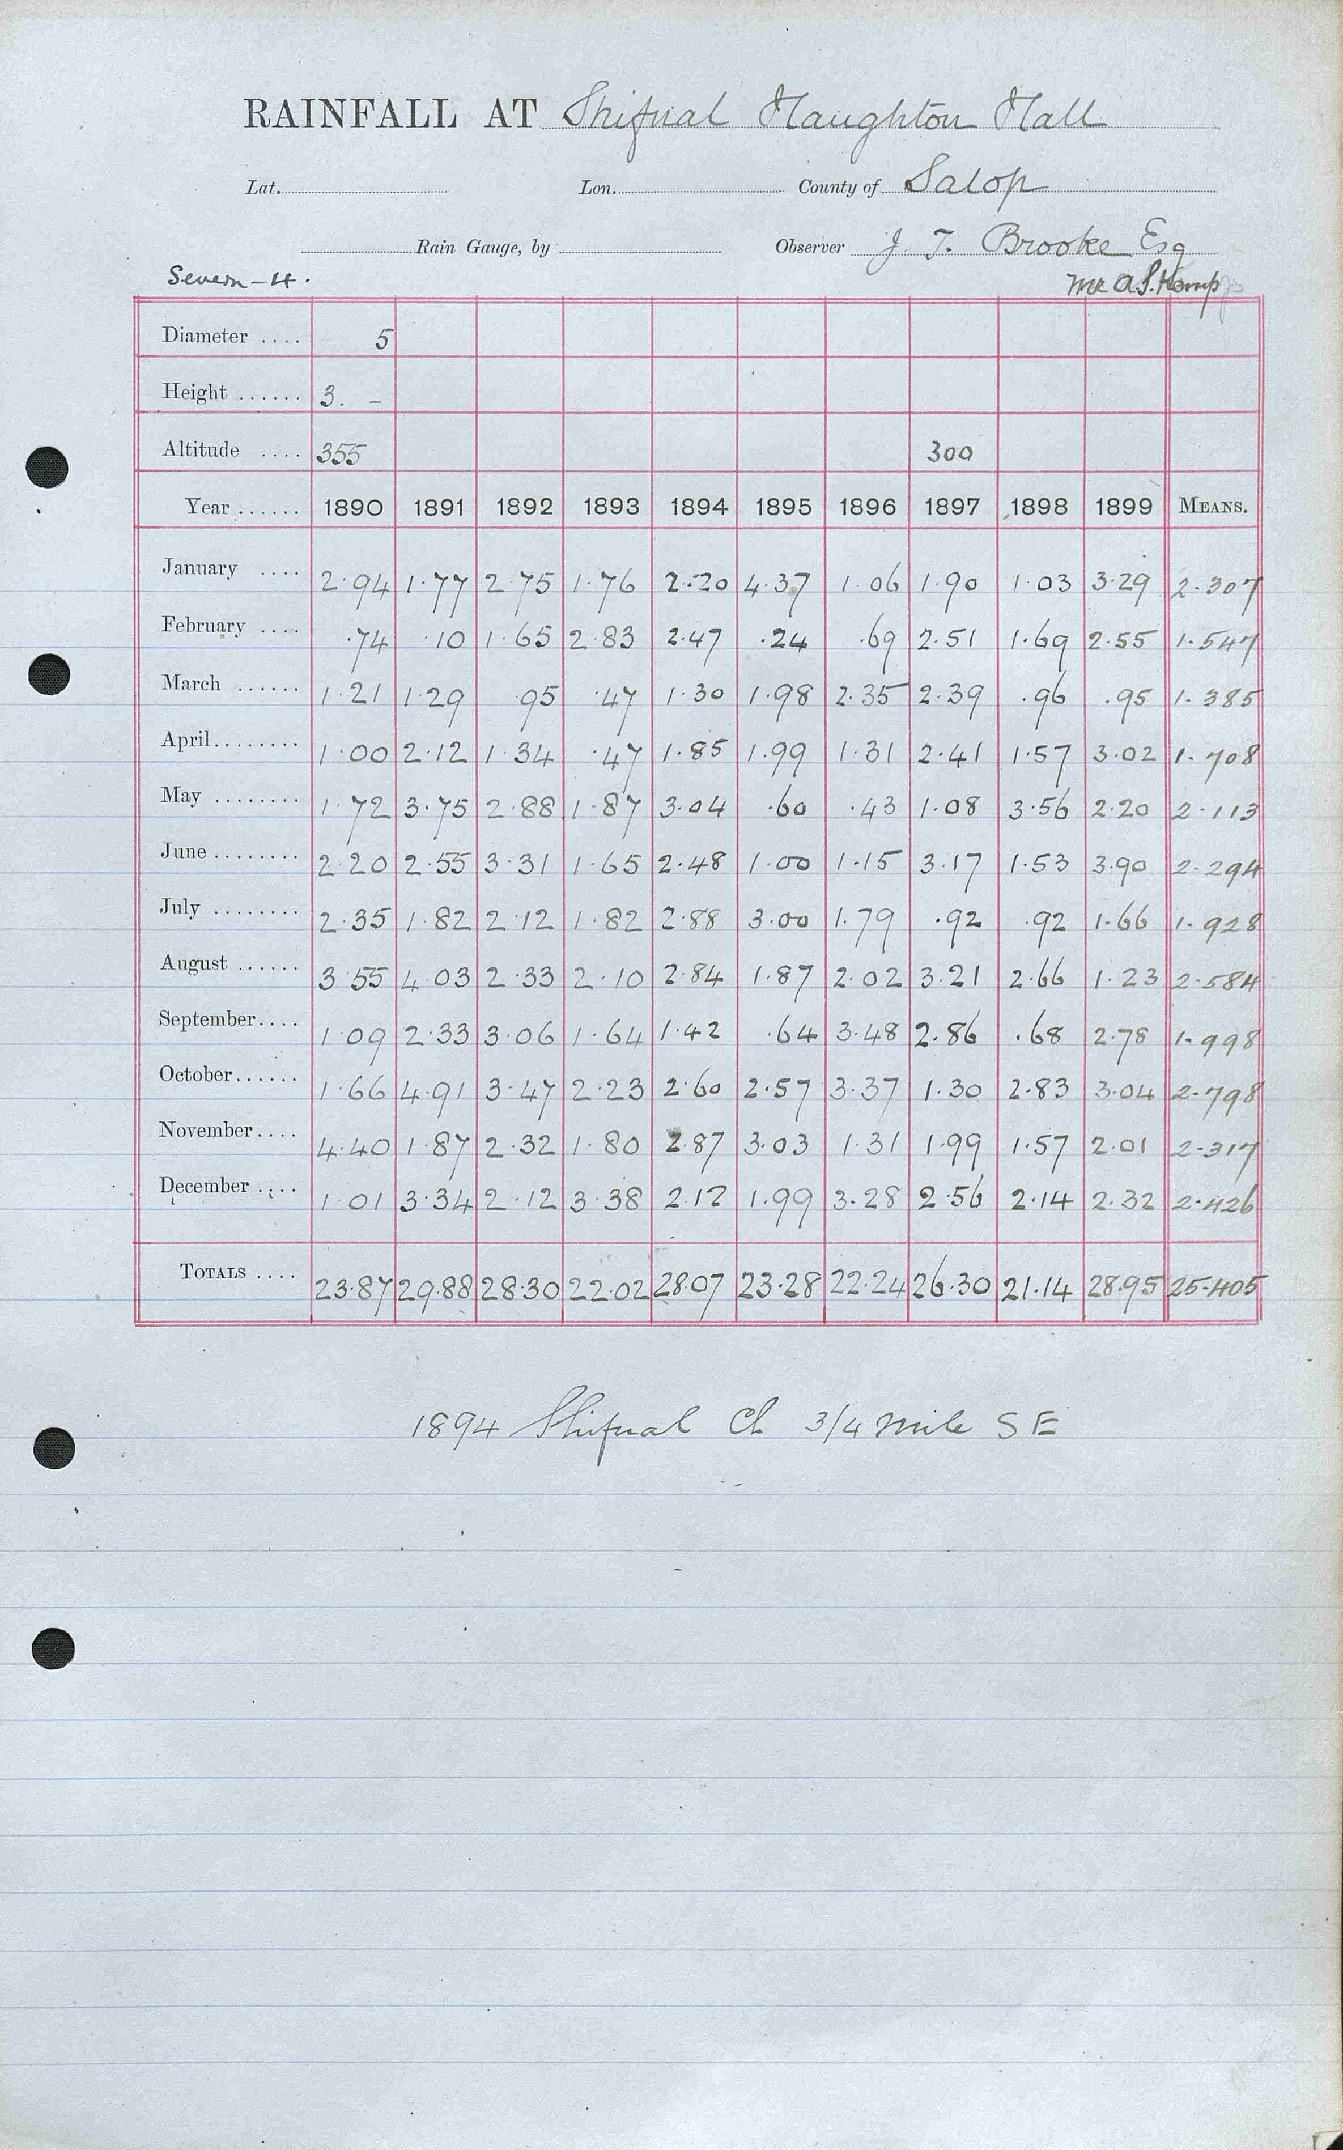 RAINFALL AT Shifnal Haughton Hall
Lat. Lon. County of Salop
Rain Gauge, by Observer J. T. Brooke Esq
Severn - 4. Mr A. S. Kemp
Diameter .... 5
Height ...... 3. -
Altitude .... 355 300
Year ...... 1890 1891 1892 1893 1894 1895 1896 1897 1898 1899 MEANS.
January .... 2.94 1.77 2.75 1.76 2.20 4.37 1.06 1.90 1.03 3.29 2.307
February .... .74 .10 1.65 2.83 2.47 .24 .69 2.51 1.69 2.55 1.547
March ...... 1.21 1.29 .95 .47 1.30 1.98 2.35 2.39 .96 .95 1.385
April........ 1.00 2.12 1.34 .47 1.85 1.99 1.31 2.41 1.57 3.02 1.708
May ........ 1.72 3.75 2.88 1.87 3.04 .60 .43 1.08 3.56 2.20 2.113
June ........ 2.20 2.55 3.31 1.65 2.48 1.00 1.15 3.17 1.53 3.90 2.294
July ........ 2.35 1.82 2.12 1.82 2.88 3.00 1.79 .92 .92 1.66 1.928
August ...... 3.55 4.03 2.33 2.10 2.84 1.87 2.02 3.21 2.66 1.23 2.584
September.... 1.09 2.33 3.06 1.64 1.42 .64 3.48 2.86 .68 2.78 1.998
October...... 1.66 4.91 3.47 2.23 2.60 2.57 3.37 1.30 2.83 3.04 2.798
November.... 4.40 1.87 2.32 1.80 2.87 3.03 1.31 1.99 1.57 2.01 2.317
December .... 1.01 3.34 2.12 3.38 2.12 1.99 3.28 2.56 2.14 2.32 2.426
TOTALS .... 23.87 29.88 28.30 22.02 28.07 23.28 22.24 26.30 21.14 28.95 25.405
1894 Shifnal Ch 3/4 mile S E